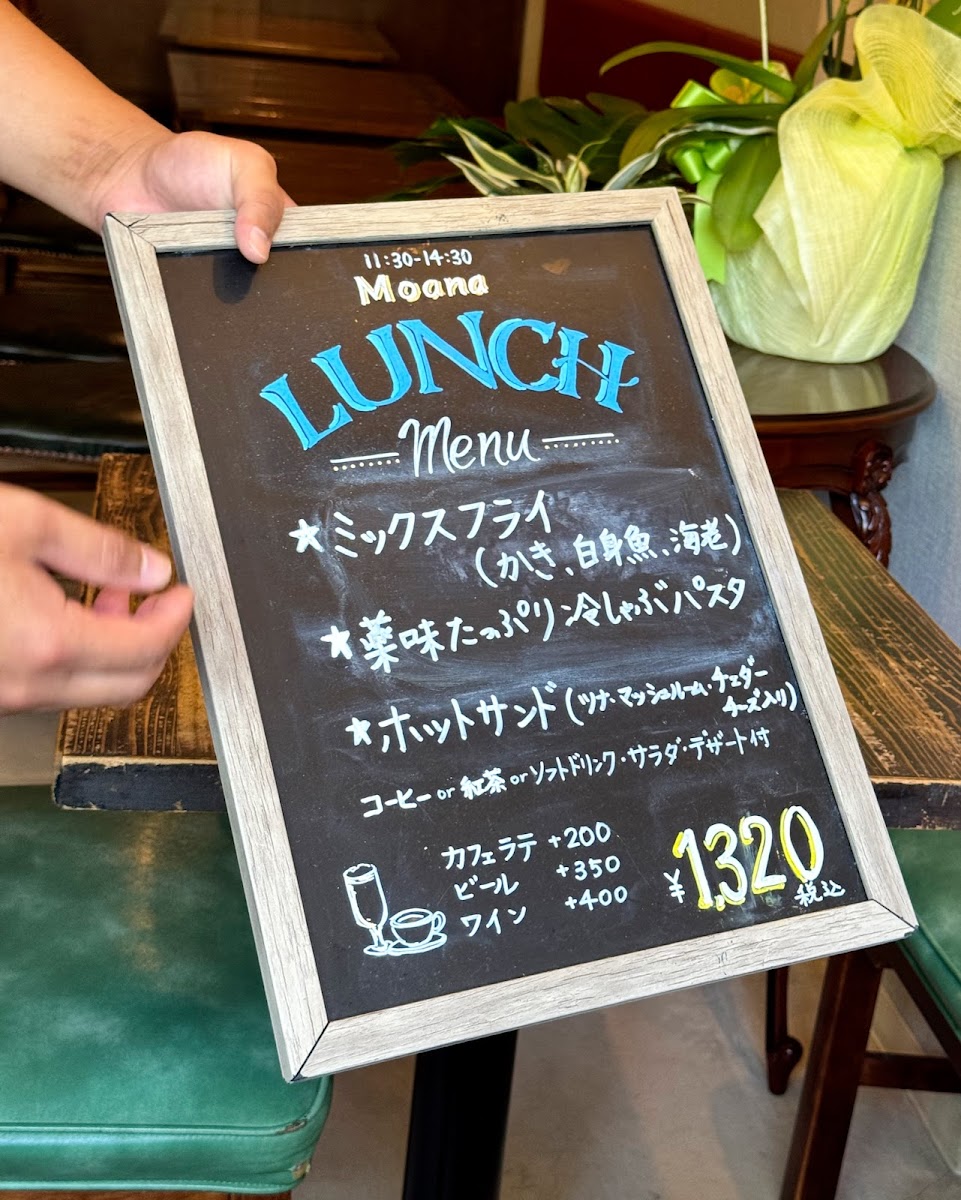 11:30-14:30
Moana
LUNCH
Menu
★ミックスフライ
(かき、白身魚、海老)
★薬味たっぷり冷しゃぶパスタ
★ホットサンド(ツナ・マッシュルーム・チェダー
チーズ入り)
コーヒー or 紅茶 or ソフトドリンク・サラダ・デザート付
カフェラテ +200
ビール +350
ワイン +400
¥1,320
税込